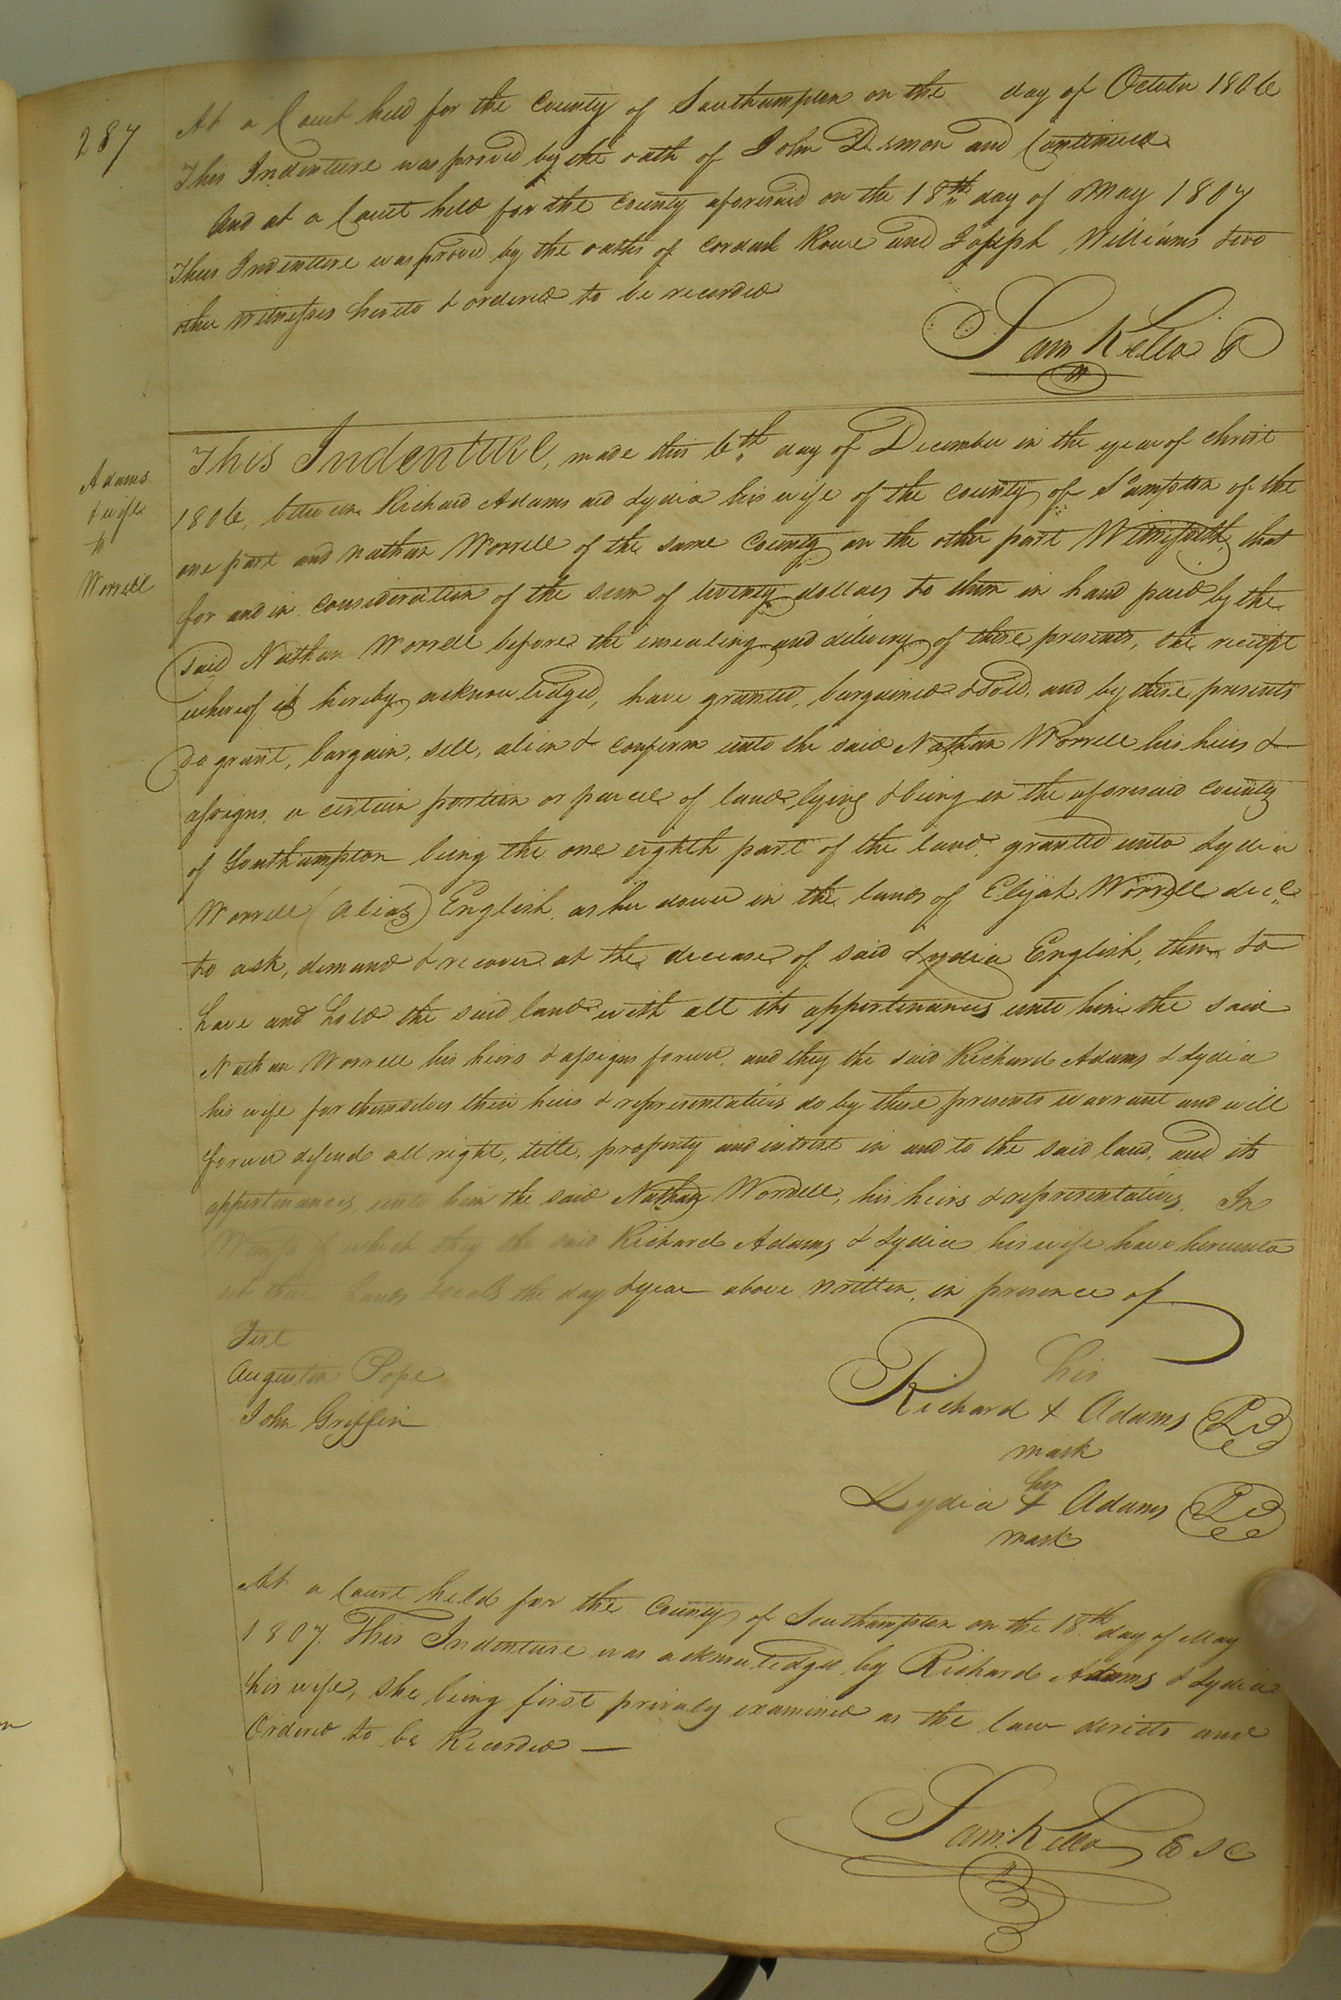 287
At a Court held for the County of Southampton on the day of October 1806
This Indenture was proved by the oath of John D and Continued
And at a Court held for the County aforesaid on the 18th day of May 1807
This Indenture was proved by the oaths of Cordall Rowe and Joseph Williams two
other Witnesses hereto & ordered to be recorded
Sam Kello
Adams
& wife
to
Worrell
This Indenture, made this 6th day of December in the year of Christ
1806, between Richard Adams and Lydia his wife of the county of S'ampton of the
one part and Nathan Worrell of the same County on the other part Witnesseth, that
for and in consideration of the sum of twenty dollars to them in hand paid by the
said Nathan Worrell before the ensealing and delivery of these presents, the receipt
whereof is hereby acknowledged, have granted, bargained & sold, and by these presents
do grant, bargain, sell, alien & confirm unto the said Nathan Worrell his heirs &
assigns, a certain portion or parcel of land, lying & being in the aforesaid county
of Southampton being the one eighth part of the land granted unto Lydia
Worrell (alias) English, as her dower in the lands of Elijah Worrell decd
to ask, demand & recover at the decease of said Lydia English, then to
have and hold the said land with all its appertenances unto him the said
Nathan Worrell his heirs & assigns forever, and they the said Richard Adams & Lydia
his wife for themselves their heirs & representatives do by these presents warrant and will
forever defend all right, title, property and intrest in and to the said land, and its
appertenances, unto him the said Nathan Worrell, his heirs & representatives. In
Witness of which they the said Richard Adams & Lydia his wife have hereunto
set their hands & seals the day & year above written, in presence of
Test
Augustin Pope
John Griffin
his
Richard + Adams LS
mark
her
Lydia + Adams LS
mark
At a Court held for the County of Southampton on the 18th day of May
1807. This Indenture was acknowledged by Richard Adams & Lydia
his wife, she being first privily examined as the law directs and
Ordered to be Recorded —
Sam: Kello